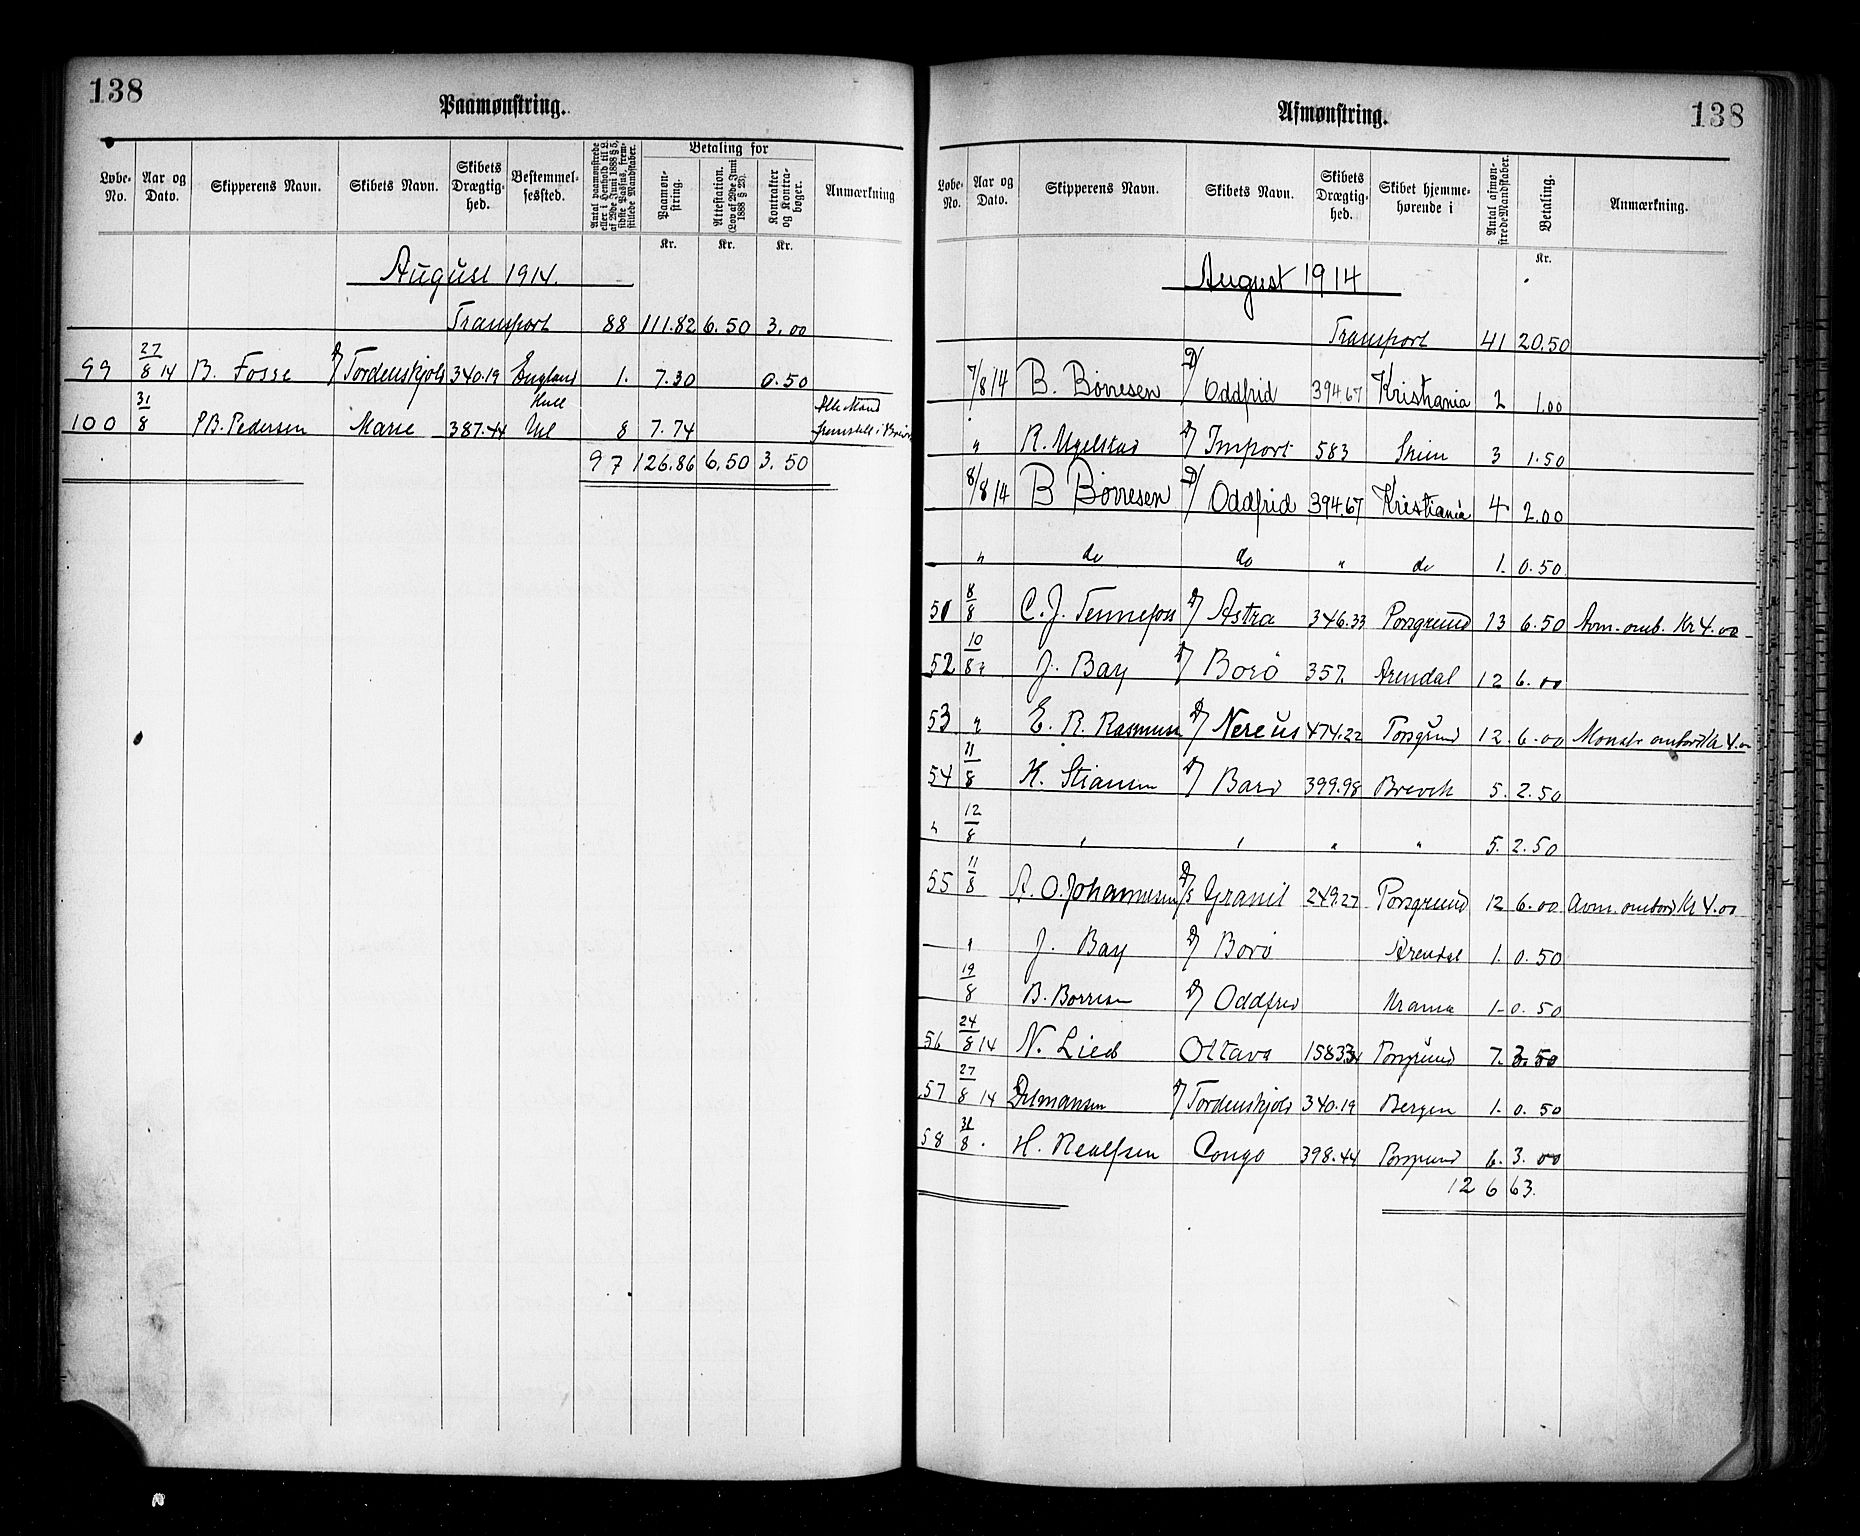 138
Paamønstring.
Løbe-No. Aar og Dato. Skipperens Navn. Skibets Navn. Skibets Drægtighed. Bestemmelsessted. Antal paamønstrede eller i Henhold til L. af 29de Juni 1888 § 5, sidste Passus, fremstillede Mandskaber. Betaling for Paamønstring. Attestation. (Lov af 29de Juni 1888 § 23). Kontrakter og Kontrabøger. Anmærkning
Kr. Kr. Kr.
August 1914.
Transport 88 111.82 6.50 3.00
99 27/8 14 B. Fosse D/ Tordenskjold 340.19 England 1. 7.30 0.50
100 31/8 P.B. Pedersen Marie 387.44 Hull 8 7.74 Alle Mand fremstill. i
97 126.86 6.50 3.50
138
Afmønstring.
Løbe-No. Aar og Dato. Skipperens Navn. Skibets Navn. Skibets Drægtighed. Skibet hjemmehørende i Antal afmønstrede Mandskaber. Betaling. Anmærkning.
Kr.
August 1914
Transport 41 20.50
7/8 14 B. Børresen D/ Oddfrid 394.67 Kristiania 2 1.00
" R. Ugelstad D/ Import 583 Skien 3 1.50
8/8 14 B Børresen D/ Oddfrid 394.67 Kristiania 4 2.00
" do do " do 1. 0.50
51 8/8 C. J. Tennefoss D/ Astra 346.33 Porsgrund 13 6.50 Avm. omb. Kr 4.00
52 10/8 J. Bay D/ Borø 357. Arendal 12 6.00
53 " E. R. Rasmussen D/ Nereus 474.22 Porsgrund 12. 6.00 Mønstr ombord Kr 4.00
54 11/8 K. Stiansen D/ Bard 399.98 Brevik 5. 2.50
" 12/8 " " " " 5. 2.50
55 11/8 A. O. Johannesen D/S Granit 249.27 Porsgrund 12 6.00 Avm. ombord Kr 4.00
" J. Bay D/ Borø Arendal 1. 0.50
19/8 B. Børresen D/ Oddfrid Krania 1- 0.50
56 24/8 14 N. Lied Ottava 1583.34 Porsgrund 7. 3.50
57 27/8 14 D/ Tordenskjold 340.19 Bergen 1. 0.50
58 31/8 H. Realfsen Congo 398.44 Porsgrund 6. 3.00
126 63.